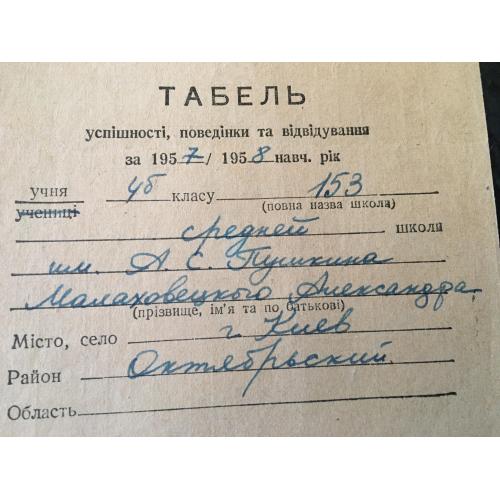 ТАБЕЛЬ
успішності, поведінки та відвідування
за 1957/ 1958 навч. рік
учня 4б класу 153
учениці (повна назва школа)
средней школи
им. А. С. Пушкина
Малаховецкого Александра
(прізвище, ім'я та по батькові)
Місто, село г. Киев
Район Октябрьский
Область